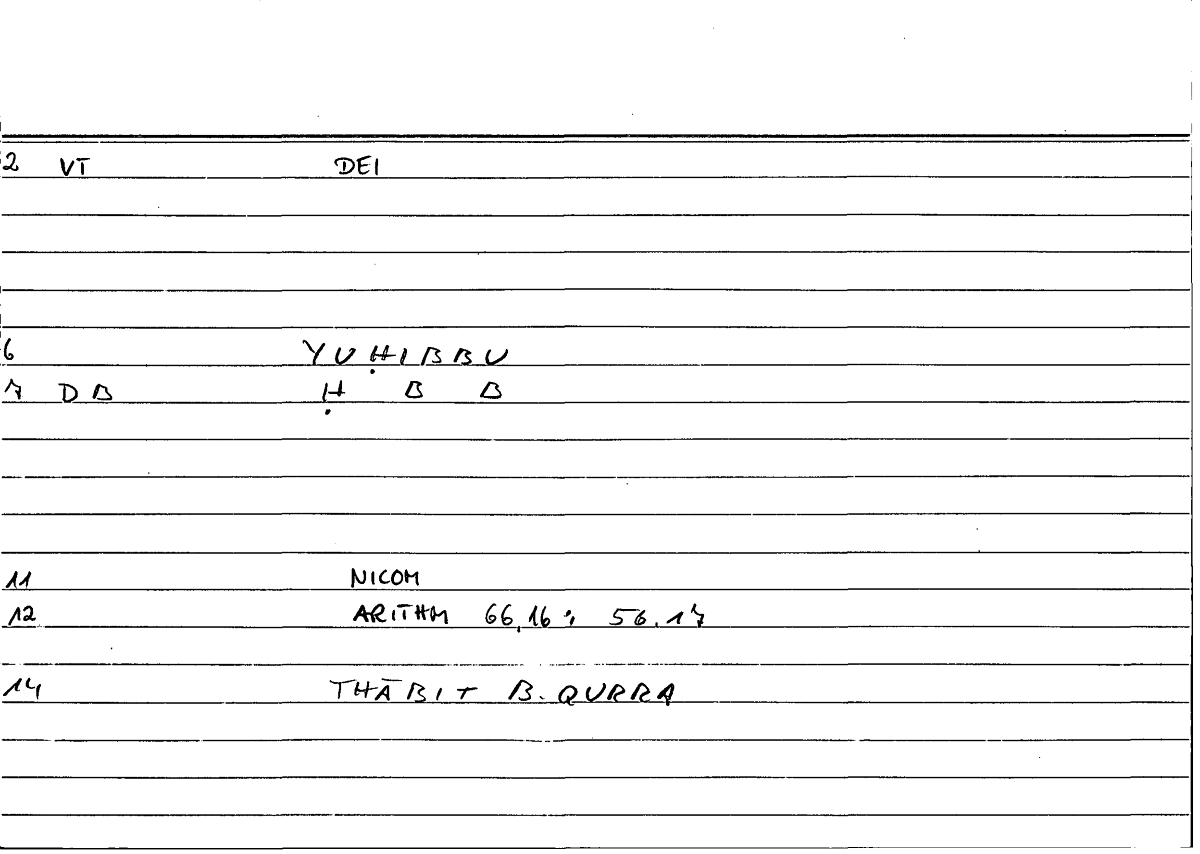 2 VT DEI
6 YUḤIBBU
7 DB Ḥ B B
11 NICOM
12 ARITHM 66,16; 56.17
14 THĀBIT B. QURRA